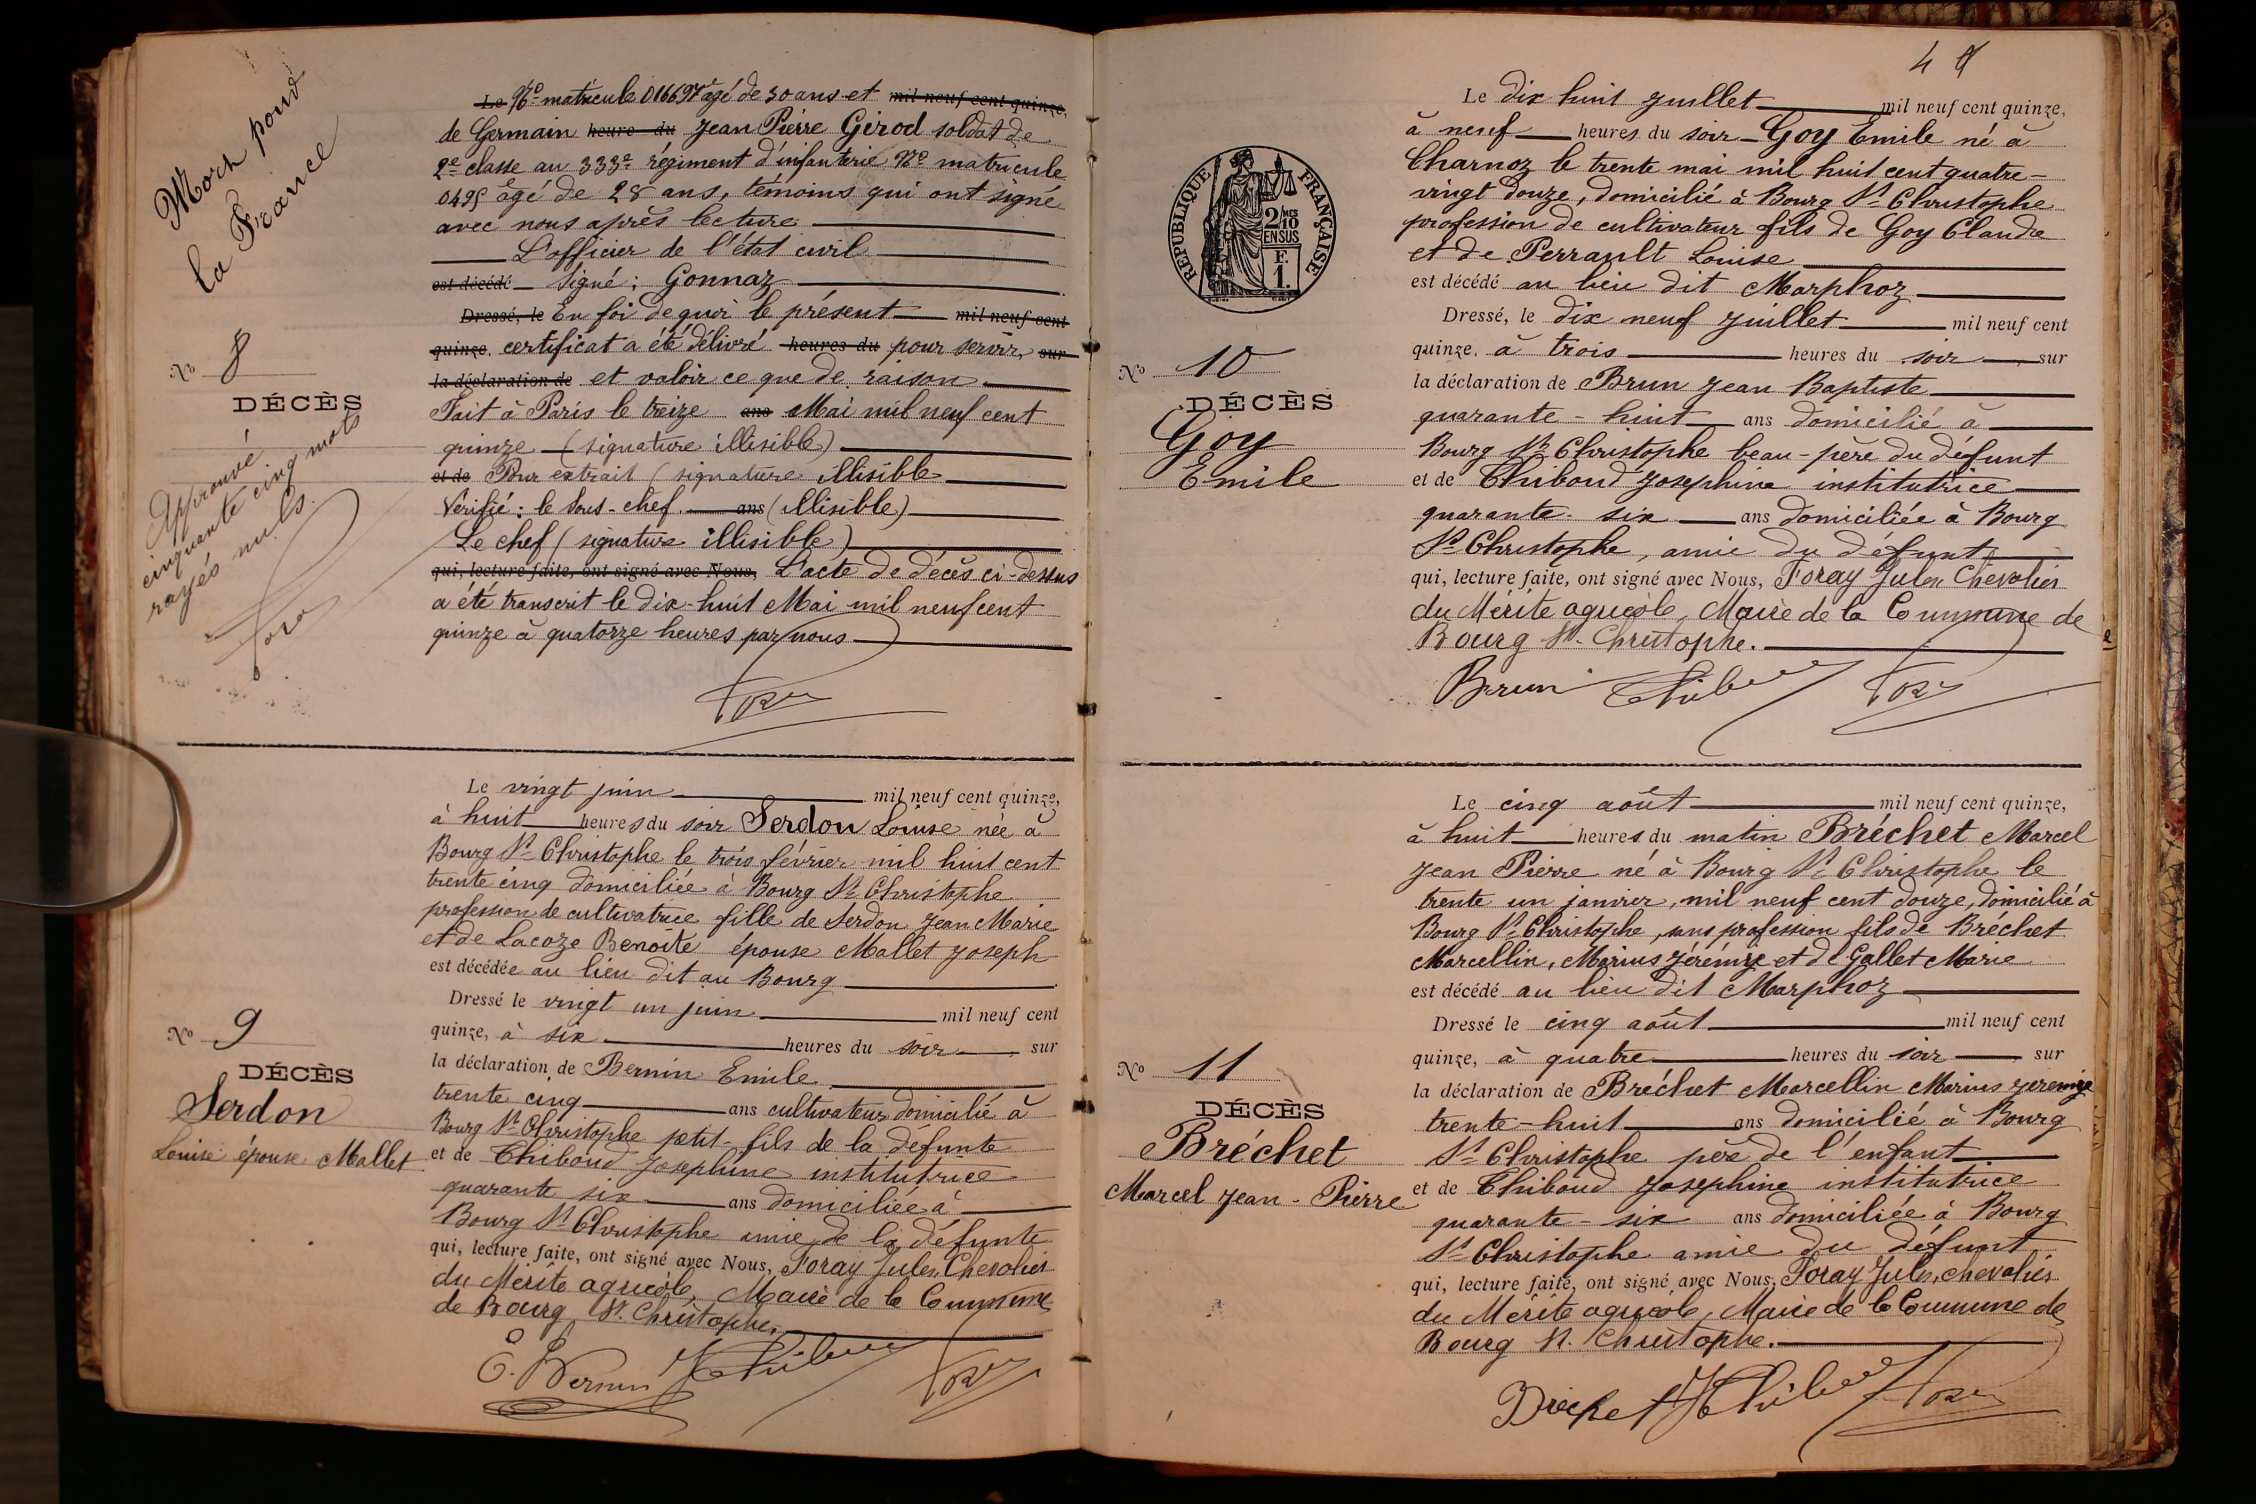 Mort pour
la France
No 8
DÉCÈS
Approuvé
cinquante cinq mots
rayés nuls.
Le No matricule 016697 âgé de 30 ans et mil neuf cent quinze,
de Germain heure du Jean Pierre Girod soldat de
2e classe au 333e régiment d'infanterie No matricule
0495 âgé de 28 ans, témoins qui ont signé
avec nous après lecture
L'officier de l'état civil
est décédé signé : Gonnaz
Dressé, le En foi de quoi le présent mil neuf cent
quinze, certificat a été délivré heures du pour servir, sur
la déclaration de et valoir ce que de raison
Fait à Paris le treize ans Mai mil neuf cent
quinze (signature illisible)
et de Pour extrait (signature illisible
Vérifié : le Sous-chef. ans (illisible)
Le chef (signature illisible)
qui, lecture faite, ont signé avec Nous, L'acte de décès ci-dessus
a été transcrit le dix-huit Mai mil neuf cent
quinze à quatorze heures par nous
No 9
DÉCÈS
Serdon
Louise épouse Mallet
Le vingt juin mil neuf cent quinze,
à huit heures du soir Serdon Louise née à
Bourg St Christophe le trois février mil huit cent
trente cinq domiciliée à Bourg St Christophe
profession de cultivatrice fille de Serdon Jean Marie
et de Lacoze Benoîte épouse Mallet Joseph
est décédée au lieu dit au Bourg
Dressé le vingt un juin mil neuf cent
quinze, à six heures du soir sur
la déclaration de Bernin Emile
trente cinq ans cultivateur domicilié à
Bourg St Christophe petit-fils de la défunte
et de Thiboud Josephine institutrice
quarante six ans domiciliée à
Bourg St Christophe amie de la défunte
qui, lecture faite, ont signé avec Nous, Foray Jules, Chevalier
du Mérite agricole, Maire de la Commune
de Bourg St. Christophe.
E. Bernin
4
RÉPUBLIQUE FRANÇAISE
2 MES 10
EN SUS
F.
1.
No 10
DÉCÈS
Goy
Emile
Le dix huit Juillet mil neuf cent quinze,
à neuf heures du soir Goy Emile né à
Charnoz le trente mai mil huit cent quatre-
vingt douze, domicilié à Bourg St Christophe
profession de cultivateur fils de Goy Claude
et de Perrault Louise
est décédé au lieu dit Marphoz
Dressé, le dix neuf Juillet mil neuf cent
quinze, à trois heures du soir sur
la déclaration de Brun Jean Baptiste
quarante-huit ans domicilié à
Bourg St Christophe beau-père du défunt
et de Thiboud Josephine institutrice
quarante-six ans domiciliée à Bourg
St Christophe, amie du défunt
qui, lecture faite, ont signé avec Nous, Foray Jules Chevalier
du Mérite agricole, Maire de la Commune de
Bourg St. Christophe.
Brun
No 11
DÉCÈS
Bréchet
Marcel Jean-Pierre
Le cinq août mil neuf cent quinze,
à huit heures du matin Bréchet Marcel
Jean Pierre né à Bourg St Christophe le
trente un janvier, mil neuf cent douze, domicilié à
Bourg St Christophe, sans profession fils de Bréchet
Marcellin, Marius Jérémye et de Gallet Marie
est décédé au lieu dit Marphoz
Dressé le cinq août mil neuf cent
quinze, à quatre heures du soir sur
la déclaration de Bréchet Marcellin Marius Jeremye
trente-huit ans domicilié à Bourg
St Christophe père de l'enfant
et de Thiboud Josephine institutrice
quarante-six ans domiciliée à Bourg
St Christophe amie du défunt
qui, lecture faite, ont signé avec Nous, Foray Jules, chevalier
du Mérite agricole, Maire de la Commune de
Bourg St. Christophe.